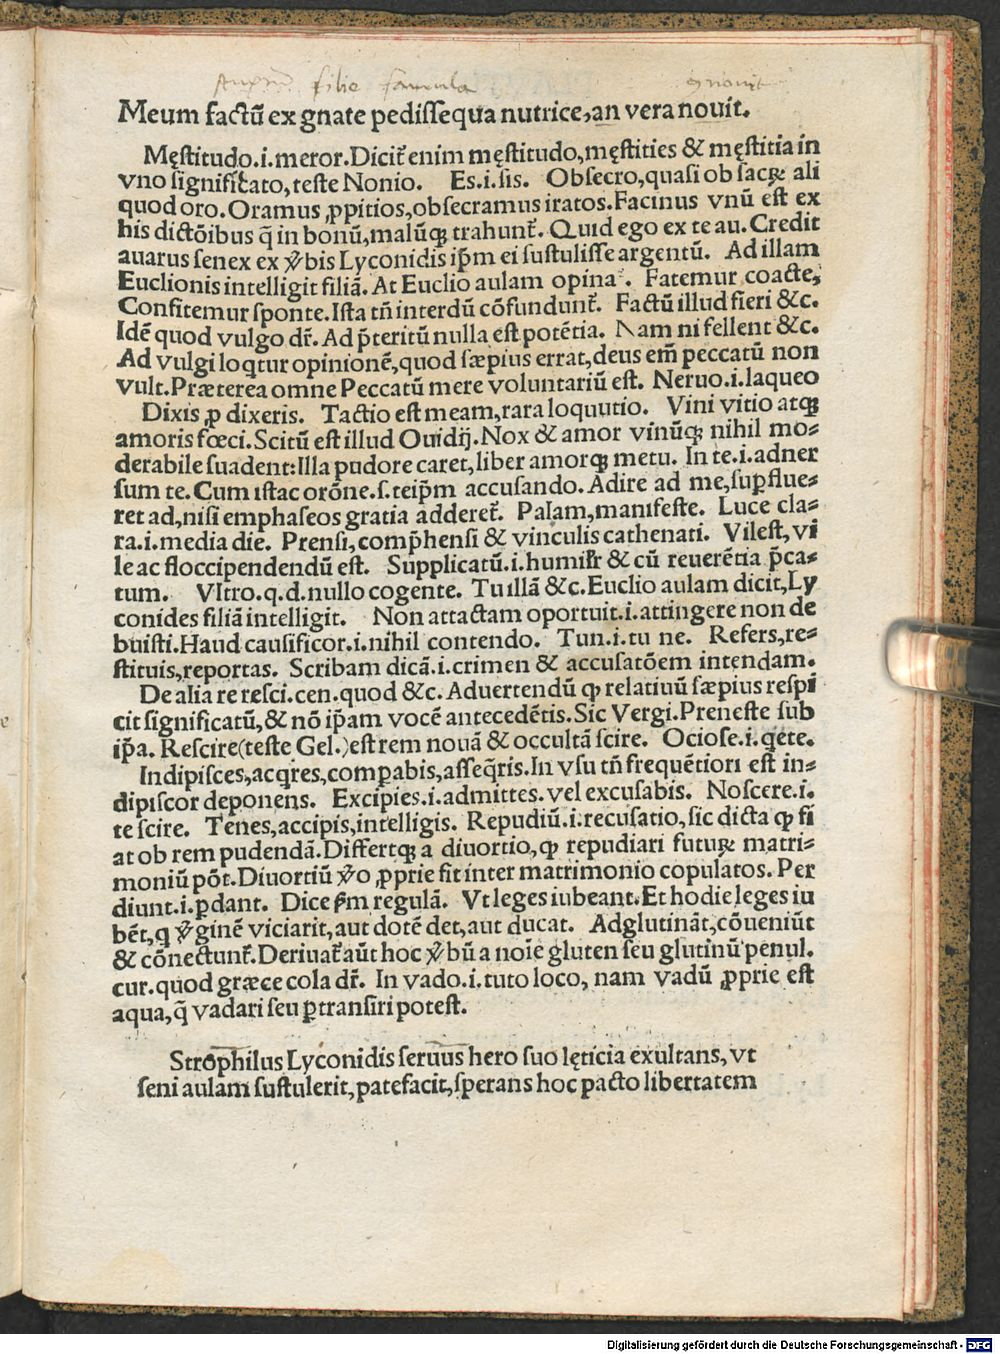 filie famula
Meum factū ex gnate pedissequa nutrice, an vera nouit.
Męstitudo.i.meror.Dicit᷑ enim męstitudo,męstities & męstitia in
vno significato,teste Nonio. Es.i.sis. Obsecro,quasi ob sacꝝ ali
quod oro.Oramus ꝓpitios,obsecramus iratos.Facinus vnū est ex
his dictōibus q̄ in bonū,malūqꝫ trahunt᷑. Quid ego ex te au. Credit
auarus senex ex v̄bis Lyconidis ip̄m ei sustulisse argentū. Ad illam
Euclionis intelligit filiā. At Euclio aulam opinat᷑. Fatemur coacte,
Confitemur sponte.Ista tn̄ interdū cōfundunt᷑. Factū illud fieri &c.
Idē quod vulgo dr̄. Ad p̄teritū nulla est potētia. Nam ni fellent &c.
Ad vulgi loqtur opinionē,quod sæpius errat,deus em̄ peccatū non
vult.Præterea omne Peccatū mere voluntariū est. Neruo.i.laqueo
Dixis ꝓ dixeris. Tactio est meam,rara loquutio. Vini vitio atqꝫ
amoris fœci.Scitū est illud Ouidij.Nox & amor vinūqꝫ nihil mo⸗
derabile suadent:Illa pudore caret,liber amorqꝫ metu. In te.i.aduer
sum te.Cum istac orōne.s.teip̄m accusando. Adire ad me,suꝑflue⸗
ret ad,nisi emphaseos gratia adderet᷑. Palam,manifeste. Luce cla⸗
ra.i.media die. Prensi,comp̄hensi & vinculis cathenati. Vilest,vi
le ac floccipendendū est. Supplicatū.i.humilr̄ & cū reuerētia p̄ca⸗
tum. Vltro.q.d.nullo cogente. Tu illā &c.Euclio aulam dicit,Ly
conides filiā intelligit. Non attactam oportuit.i.attingere non de
buisti.Haud causificor.i.nihil contendo. Tun.i.tu ne. Refers,re⸗
stituis,reportas. Scribam dicā.i.crimen & accusatōem intendam.
De alia re resci.cen.quod &c. Aduertendū ꝙ relatiuū sæpius respi
cit significatū,& nō ip̄am vocē antecedētis.Sic Vergi.Preneste sub
ip̄a. Rescire(teste Gel.)est rem nouā & occultā scire. Ociose.i.qete.
Indipisces,acqres,comꝑabis,asseqris.In vsu tn̄ frequētiori est in⸗
dipiscor deponens. Excipies.i.admittes.vel excusabis. Noscere.i.
te scire. Tenes,accipis,intelligis. Repudiū.i.recusatio,sic dicta ꝙ fi
at ob rem pudendā.Differtqꝫ a diuortio,ꝙ repudiari futuꝝ matri⸗
moniū pōt.Diuortiū v̄o ꝓprie fit inter matrimonio copulatos. Per
diunt.i.ꝑdant. Dice ẜm regulā. Vt leges iubeant.Et hodie leges iu
bēt,q v̄ginē viciarit,aut dotē det,aut ducat. Adglutināt,cōueniūt
& cōnectunt᷑.Deriuat᷑ aūt hoc v̄bū a noīe gluten seu glutinū penul.
cur.quod græce cola dr̄. In vado.i.tuto loco, nam vadū ꝓprie est
aqua,q̄ vadari seu ꝑtransiri potest.
Strophilus Lyconidis seruus hero suo lęticia exultans, vt
seni aulam sustulerit,patefacit,sperans hoc pacto libertatem
Digitalisierung gefördert durch die Deutsche Forschungsgemeinschaft - DFG